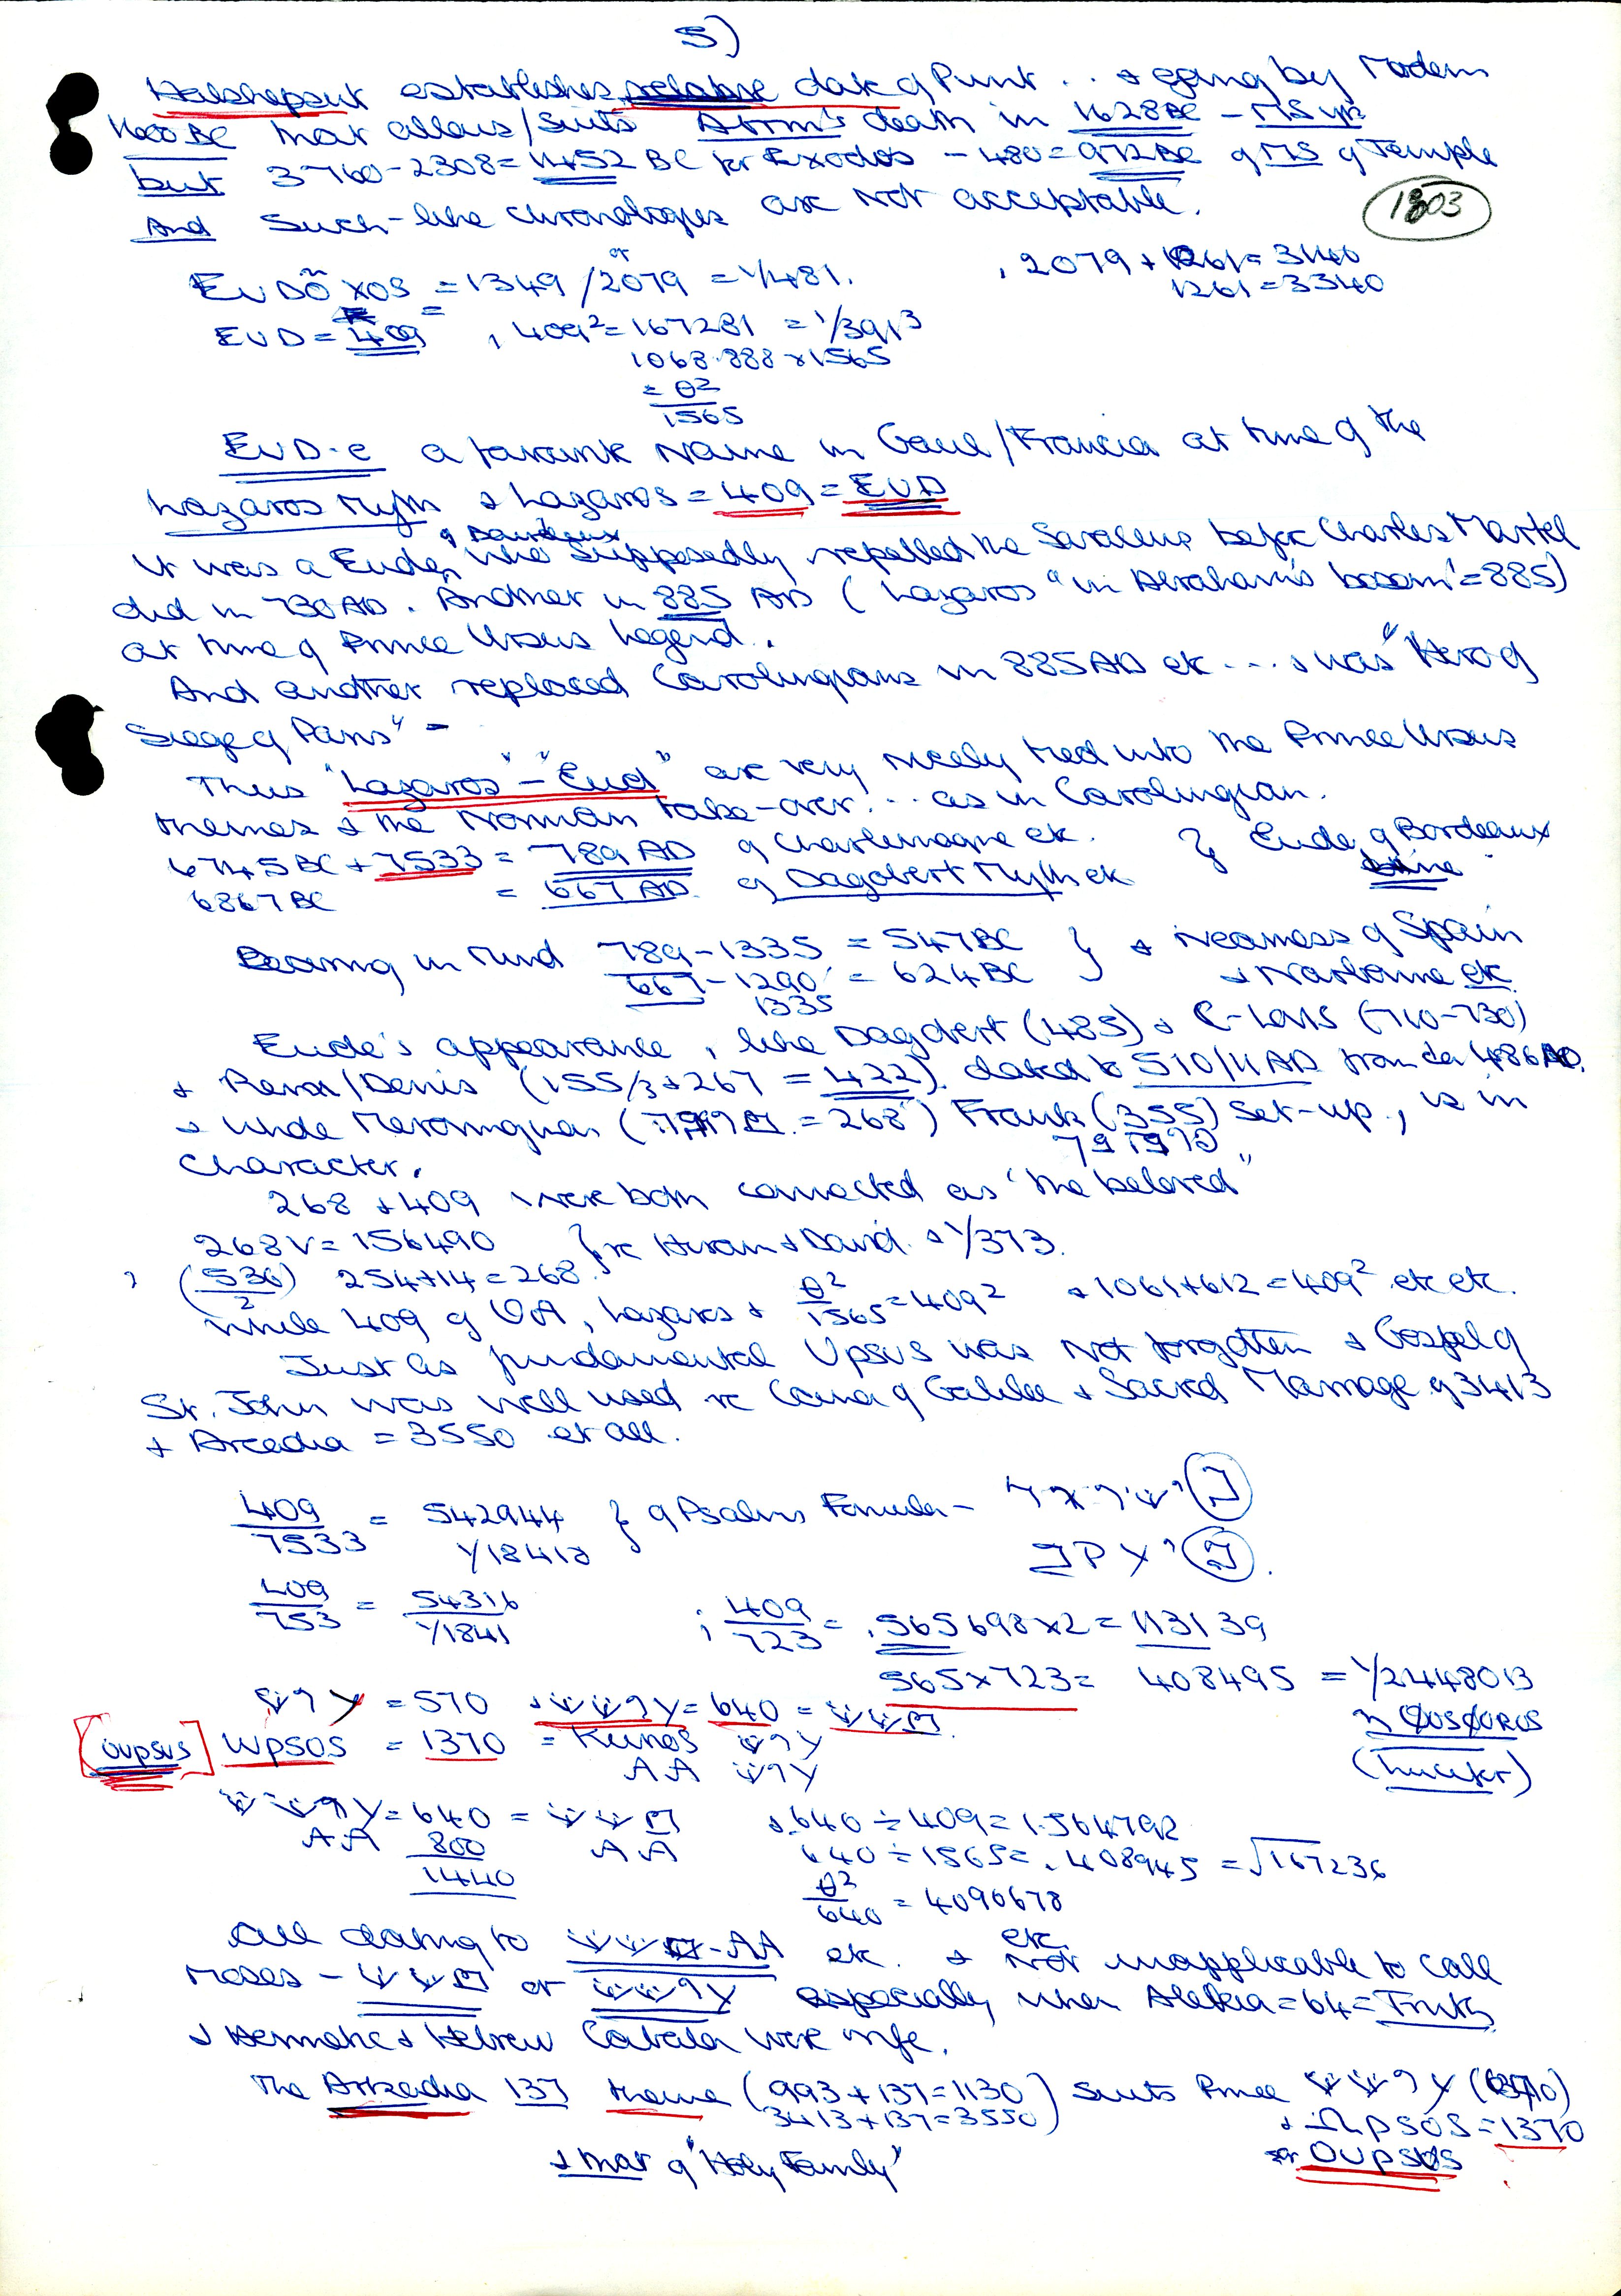 5)
Hatshepsut establishes relative date of Punt .. & going by Modern
1400 BC that allows/suits Atrm's death in 1628 BC - MS yr
but 3760-2308=1452 BC for Exodos - 480=972BC of MS of Temple
And Such-like chronologies are Not acceptable.
1803
EUDOXOS = 1349 / or 2079 = 1/481. , 2079 + 1061= 3140
1261=3340
EUD = 409 , 409²=167281 = 1/3913
1068.888 x 1565
= θ²
1565
EUD-e a favorite Name in Gaul/Francia at time of the
Lazaros Myth & Lazaros = 409 = EUD
It was a Eude, of Bordeaux who supposedly repelled the Saracens before Charles Martel
did in 730AD. Another in 885 AD (Lazaros "in Abraham's bosom"=885)
at time of Prince Ursus legend.
And another replaced Carolingians in 885AD etc ... & was "Hero of
Siege of Paris" -
Thus "Lazaros" - "Eud" are very nicely tied into the Prince Ursus
themes & the Norman take-over... as in Carolingian.
6745BC + 7533 = 789 AD of Charlemagne etc. } Eude, of Bordeaux
6867BC = 667 AD of Dagobert Myth etc
Bearing in Mind 789-1335 = 547BC } & Nearness of Spain
667-1290 = 624BC & Narbonne etc
1335
Eude's appearance, like Dagobert (485) & C-lovis (710-730)
& Denis (155/3 & 267 = 422) dated to 510/11AD from 486AD,
& whole Merovingian ( = 268) Frank (355) set-up, is in
character.
268 & 409 were both connected as "the beloved"
268 V = 156490 } re Hiram & David & 1/373.
, (536) 254+14=268
2
while 409 of , Lazaros & θ²/1565 = 409² & 1061+612=409² etc etc.
Just as fundamental Upsus was Not forgotten & Gospel of
St. John was well used re Cana of Galilee & Sacred Marriage of 3413
& Arcadia = 3550 et all.
409/7533 = 542944 } of Psalms Formula -
1/18418
409/753 = 54316 ; 409/723 = .565698x2 = 113139
1/1841
565x723 = 408495 = 1/2448013
= 570 & = 640 =
[OUPSUS] WPSOS = 1370 = Kunos
(Lucifer)
= 640 = & 640 ÷ 409 = 1.564792
AA 800 AA 640 ÷ 1565 = .408945 = √167236
1440 θ²/640 = 4090678
All dating to -AA etc. & Not inapplicable to call
Moses - or especially when Aletheia = 64 = Truth
& Hermetic & Hebrew Cabala were rife.
The Arkadia 137 theme (993+137=1130) suits Prince
3413+137=3550) & ΩPSOS = 1370
& that of "Holy Family" or OUPSUS